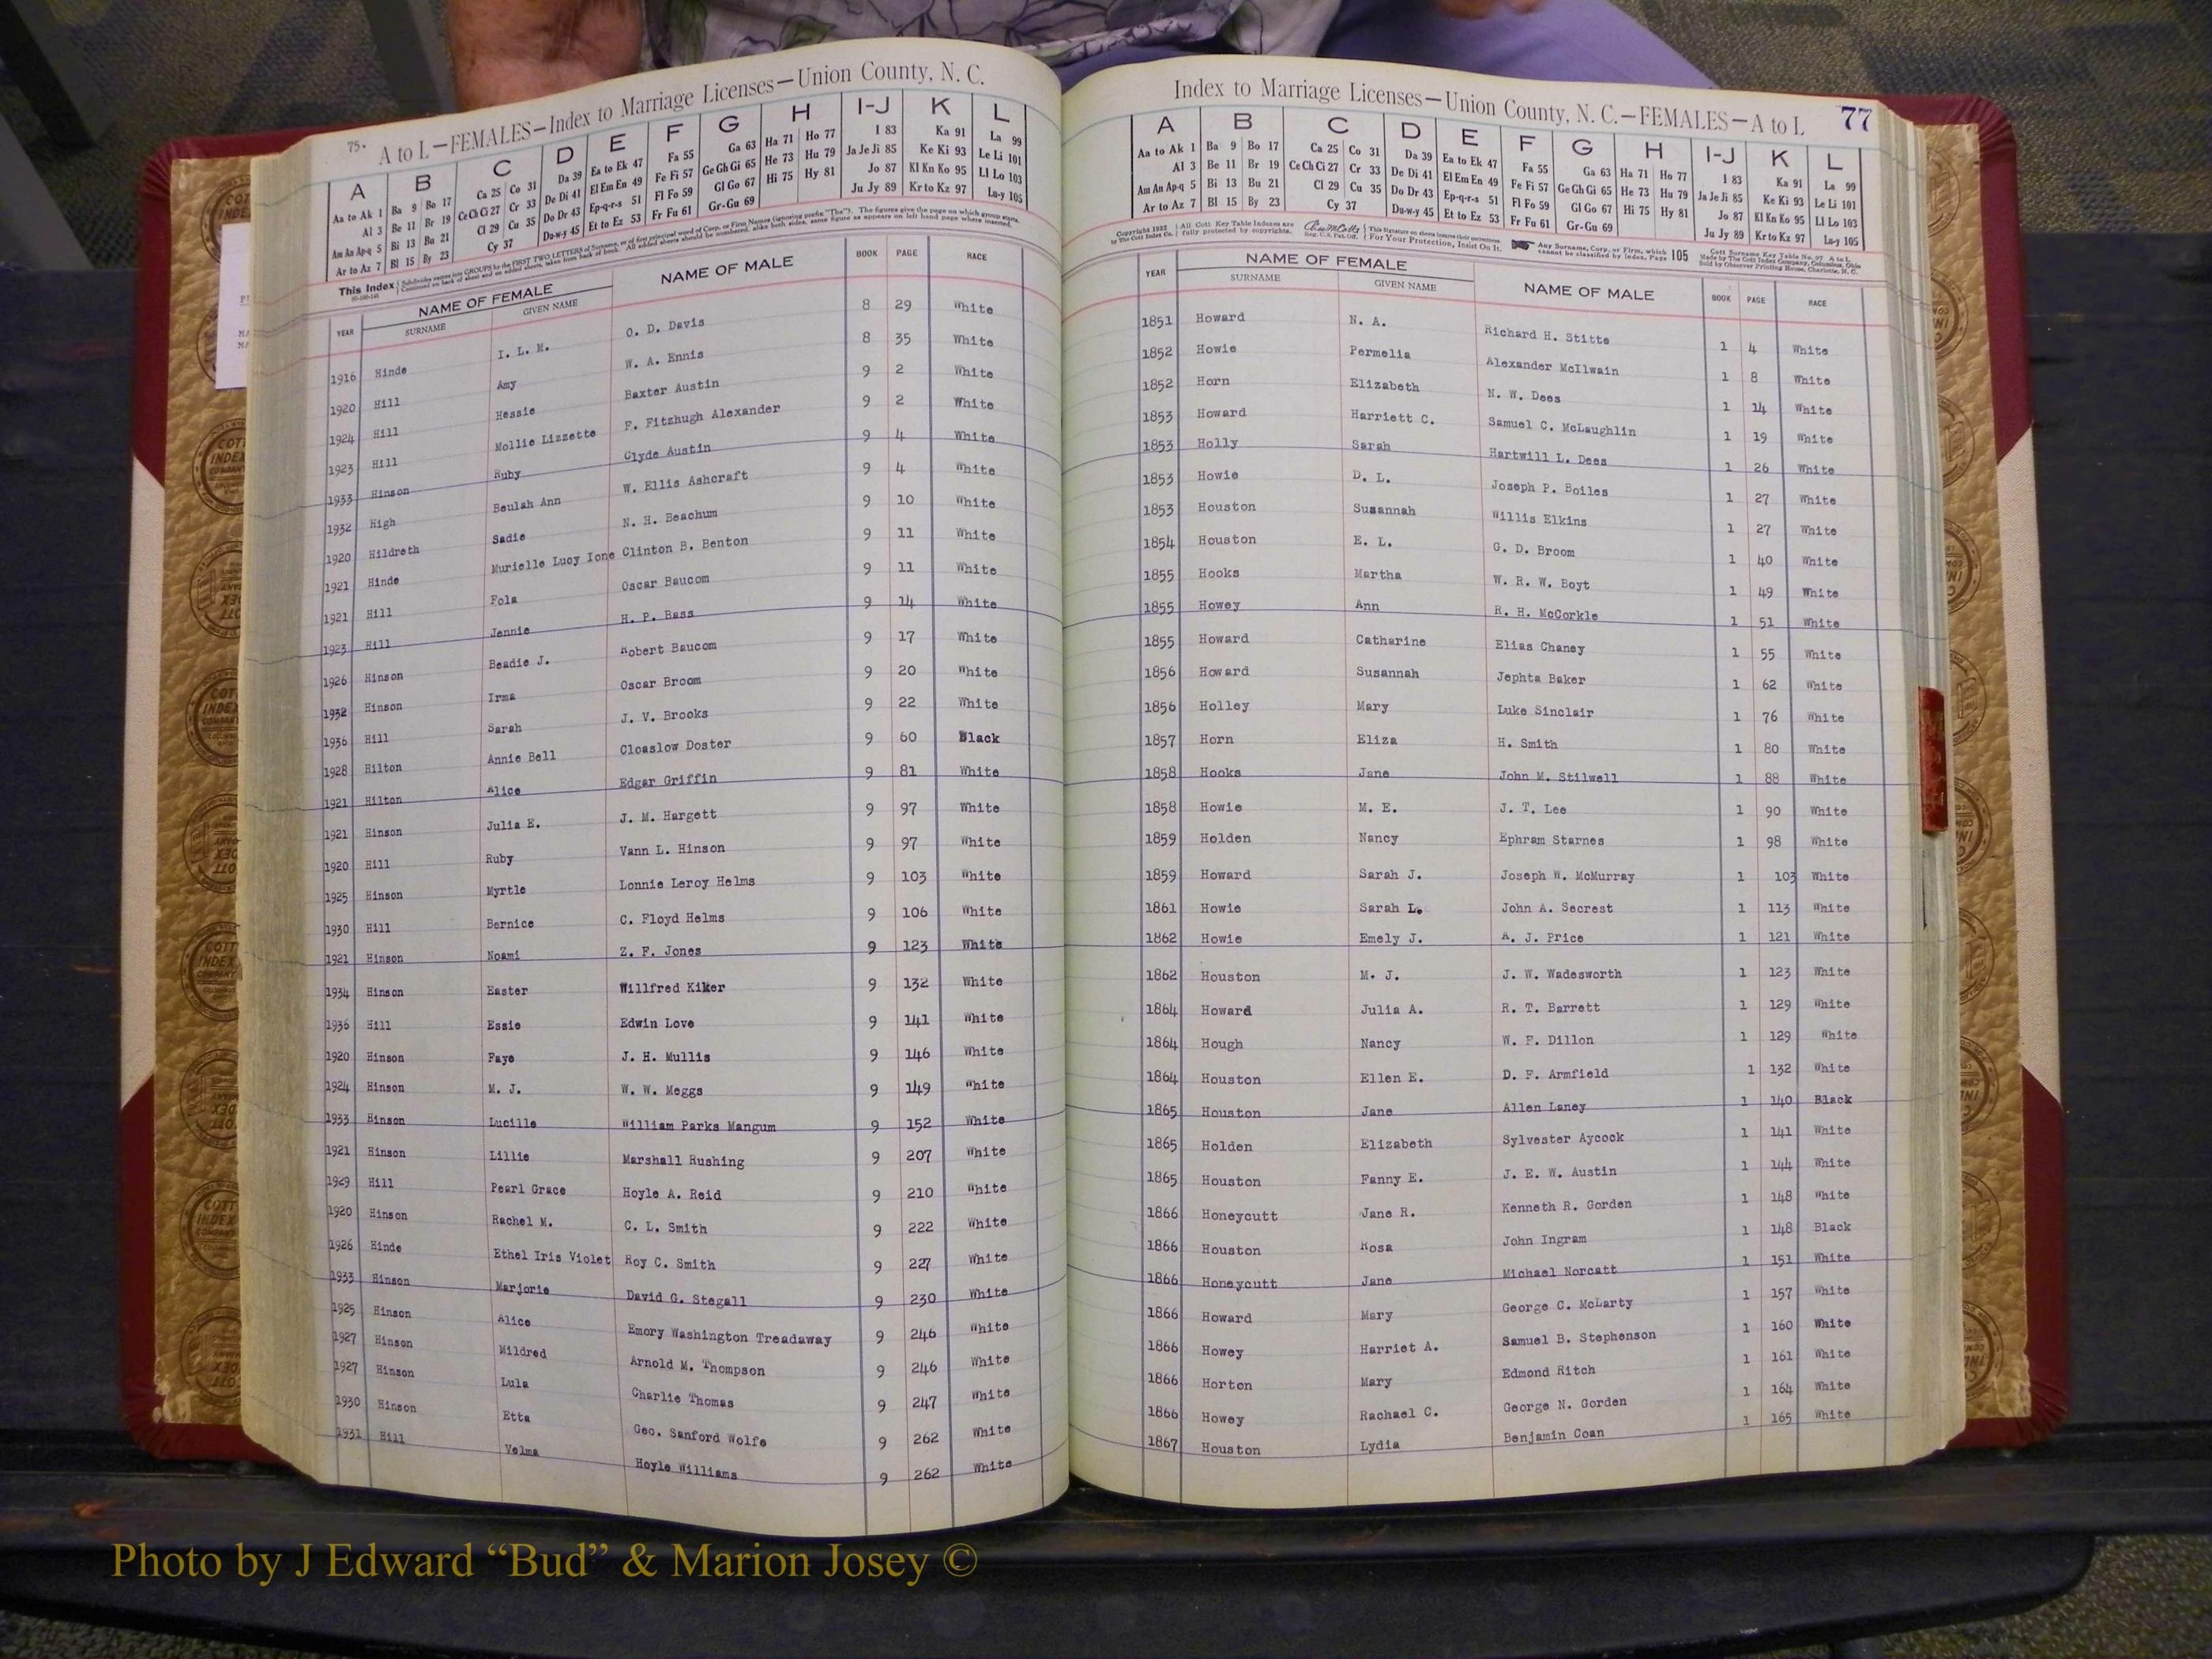 75.
A to L—FEMALES—Index to Marriage Licenses—Union County, N. C.
A B C D E F G H I-J K L
Aa to Ak 1 Ba 9 Bo 17 Ca 25 Co 31 Da 39 Ea to Ek 47 Fa 55 Ga 63 Ha 71 Ho 77 I 83 Ka 91 La 99
Al 3 Be 11 Br 19 Ce Ch Ci 27 Cr 33 De Di 41 El Em En 49 Fe Fi 57 Ge Gh Gi 65 He 73 Hu 79 Ja Je Ji 85 Ke Ki 93 Le Li 101
Am An Ap-q 5 Bi 13 Bu 21 Cl 29 Cu 35 Do Dr 43 Ep-q-r-s 51 Fl Fo 59 Gl Go 67 Hi 75 Hy 81 Jo 87 Kl Kn Ko 95 Ll Lo 103
Ar to Az 7 Bl 15 By 23 Cy 37 Du-w-y 45 Et to Ez 53 Fr Fu 61 Gr-Gu 69 Ju Jy 89 Kr to Kz 97 Lu-y 105
This Index
YEAR NAME OF FEMALE NAME OF MALE BOOK PAGE RACE
SURNAME GIVEN NAME
1916 Hinde I. L. M. O. D. Davis 8 29 White
1920 Hill Amy W. A. Ennis 8 35 White
1924 Hill Hessie Baxter Austin 9 2 White
1923 Hill Mollie Lizzette F. Fitzhugh Alexander 9 2 White
1933 Hinson Ruby Clyde Austin 9 4 White
1932 High Beulah Ann W. Ellis Ashcraft 9 4 White
1920 Hildreth Sadie N. H. Beachum 9 10 White
1921 Hinde Murielle Lucy Ione Clinton B. Benton 9 11 White
1921 Hill Fola Oscar Baucom 9 11 White
1923 Hill Jennie H. P. Bass 9 14 White
1926 Hinson Beadie J. Robert Baucom 9 17 White
1932 Hinson Irma Oscar Broom 9 20 White
1936 Hill Sarah J. V. Brooks 9 22 White
1928 Hilton Annie Bell Cloaslow Doster 9 60 Black
1921 Hilton Alice Edgar Griffin 9 81 White
1921 Hinson Julia E. J. M. Hargett 9 97 White
1920 Hill Ruby Vann L. Hinson 9 97 White
1925 Hinson Myrtle Lonnie Leroy Helms 9 103 White
1930 Hill Bernice C. Floyd Helms 9 106 White
1921 Hinson Noami Z. F. Jones 9 123 White
1934 Hinson Easter Willfred Kiker 9 132 White
1936 Hill Essie Edwin Love 9 141 White
1920 Hinson Faye J. H. Mullis 9 146 White
1924 Hinson M. J. W. W. Meggs 9 149 White
1933 Hinson Lucille William Parks Mangum 9 152 White
1921 Hinson Lillie Marshall Rushing 9 207 White
1929 Hill Pearl Grace Hoyle A. Reid 9 210 White
1920 Hinson Rachel M. C. L. Smith 9 222 White
1926 Hinde Ethel Iris Violet Roy C. Smith 9 227 White
1933 Hinson Marjorie David G. Stegall 9 230 White
1925 Hinson Alice Emory Washington Treadaway 9 246 White
1927 Hinson Mildred Arnold M. Thompson 9 246 White
1927 Hinson Lula Charlie Thomas 9 247 White
1930 Hinson Etta Geo. Sanford Wolfe 9 262 White
1931 Hill Velma Hoyle Williams 9 262 White
Index to Marriage Licenses—Union County, N. C.—FEMALES—A to L 77
A B C D E F G H I-J K L
Aa to Ak 1 Ba 9 Bo 17 Ca 25 Co 31 Da 39 Ea to Ek 47 Fa 55 Ga 63 Ha 71 Ho 77 I 83 Ka 91 La 99
Al 3 Be 11 Br 19 Ce Ch Ci 27 Cr 33 De Di 41 El Em En 49 Fe Fi 57 Ge Gh Gi 65 He 73 Hu 79 Ja Je Ji 85 Ke Ki 93 Le Li 101
Am An Ap-q 5 Bi 13 Bu 21 Cl 29 Cu 35 Do Dr 43 Ep-q-r-s 51 Fl Fo 59 Gl Go 67 Hi 75 Hy 81 Jo 87 Kl Kn Ko 95 Ll Lo 103
Ar to Az 7 Bl 15 By 23 Cy 37 Du-w-y 45 Et to Ez 53 Fr Fu 61 Gr-Gu 69 Ju Jy 89 Kr to Kz 97 Lu-y 105
Copyright 1922 by The Cott Index Co. All Cott Key Table Indexes are fully protected by copyrights. For Your Protection, Insist On It. Any Surname, Corp. or Firm, which cannot be classified by Index, Page 105
YEAR NAME OF FEMALE NAME OF MALE BOOK PAGE RACE
SURNAME GIVEN NAME
1851 Howard N. A. Richard H. Stitte 1 4 White
1852 Howie Permelia Alexander McIlwain 1 8 White
1852 Horn Elizabeth N. W. Dees 1 14 White
1853 Howard Harriett C. Samuel C. McLaughlin 1 19 White
1853 Holly Sarah Hartwill L. Dees 1 26 White
1853 Howie D. L. Joseph P. Boiles 1 27 White
1853 Houston Susannah Willis Elkins 1 27 White
1854 Houston E. L. G. D. Broom 1 40 White
1855 Hooks Martha W. R. W. Boyt 1 49 White
1855 Howey Ann R. H. McCorkle 1 51 White
1855 Howard Catharine Elias Chaney 1 55 White
1856 Howard Susannah Jephta Baker 1 62 White
1856 Holley Mary Luke Sinclair 1 76 White
1857 Horn Eliza H. Smith 1 80 White
1858 Hooks Jane John M. Stilwell 1 88 White
1858 Howie M. E. J. T. Lee 1 90 White
1859 Holden Nancy Ephram Starnes 1 98 White
1859 Howard Sarah J. Joseph W. McMurray 1 103 White
1861 Howie Sarah L. John A. Secrest 1 113 White
1862 Howie Emely J. A. J. Price 1 121 White
1862 Houston M. J. J. W. Wadesworth 1 123 White
1864 Howard Julia A. R. T. Barrett 1 129 White
1864 Hough Nancy W. F. Dillon 1 129 White
1864 Houston Ellen E. D. F. Armfield 1 132 White
1865 Houston Jane Allen Laney 1 140 Black
1865 Holden Elizabeth Sylvester Aycock 1 141 White
1865 Houston Fanny E. J. E. W. Austin 1 144 White
1866 Honeycutt Jane R. Kenneth R. Gorden 1 148 White
1866 Houston Rosa John Ingram 1 148 Black
1866 Honeycutt Jane Michael Norcatt 1 151 White
1866 Howard Mary George C. McLarty 1 157 White
1866 Howey Harriet A. Samuel B. Stephenson 1 160 White
1866 Horton Mary Edmond Ritch 1 161 White
1866 Howey Rachael C. George N. Gorden 1 164 White
1867 Houston Lydia Benjamin Coan 1 165 White
Photo by J Edward “Bud” & Marion Josey ©